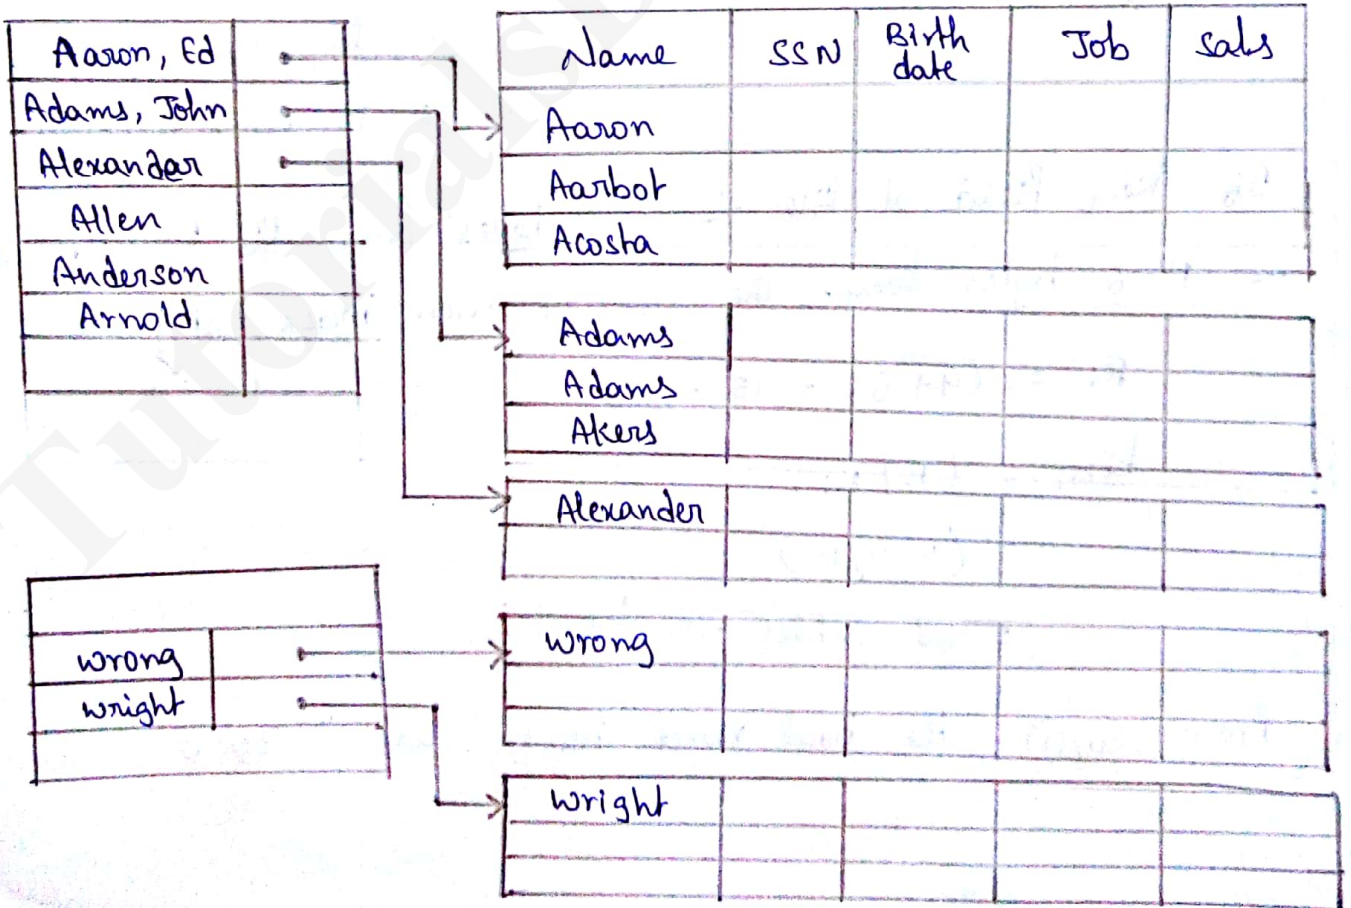 Aaron, Ed
Adams, John
Alexandar
Allen
Anderson
Arnold.
Name SSN Birth date Job Sals
Aaron
Aarbot
Acosta
Adams
Adams
Akers
Alexander
wrong
wright
wrong
wright
Tutorials